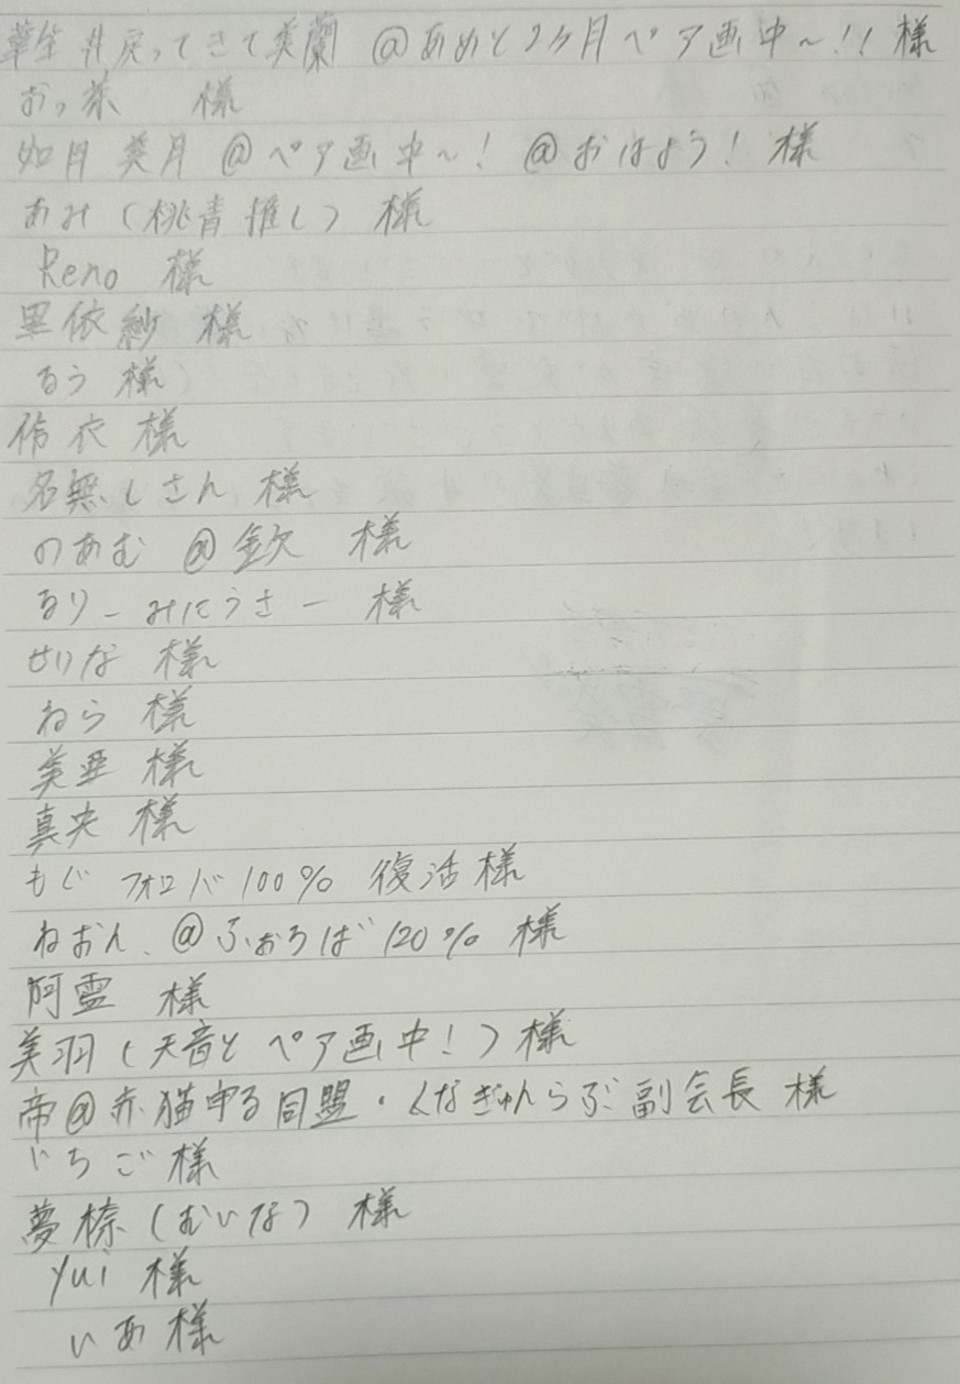 戻ってきて美蘭 @あめと2ケ月ペア画中~!! 様
おっ茶 様
如月 美月 @ペア画中~! @おはよう! 様
あみ(桃青推し) 様
Reno 様
里依紗 様
るう 様
伶衣 様
名無しさん 様
のあむ @欽 様
るりーみにうさー 様
せりな 様
ねら 様
美亜 様
真央 様
もぐ フォロバ100% 復活様
ねおん、@ふぉろば120% 様
阿霊 様
美羽(天音とペア画中!)様
帝@赤猫守る同盟・くなぎゅんらぶ副会長 様
いちご様
夢榛(むいな) 様
yui 様
いあ様